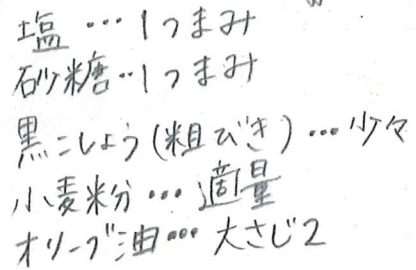 塩…1つまみ
砂糖…1つまみ
黒こしょう(粗びき)…少々
小麦粉…適量
オリーブ油…大さじ2